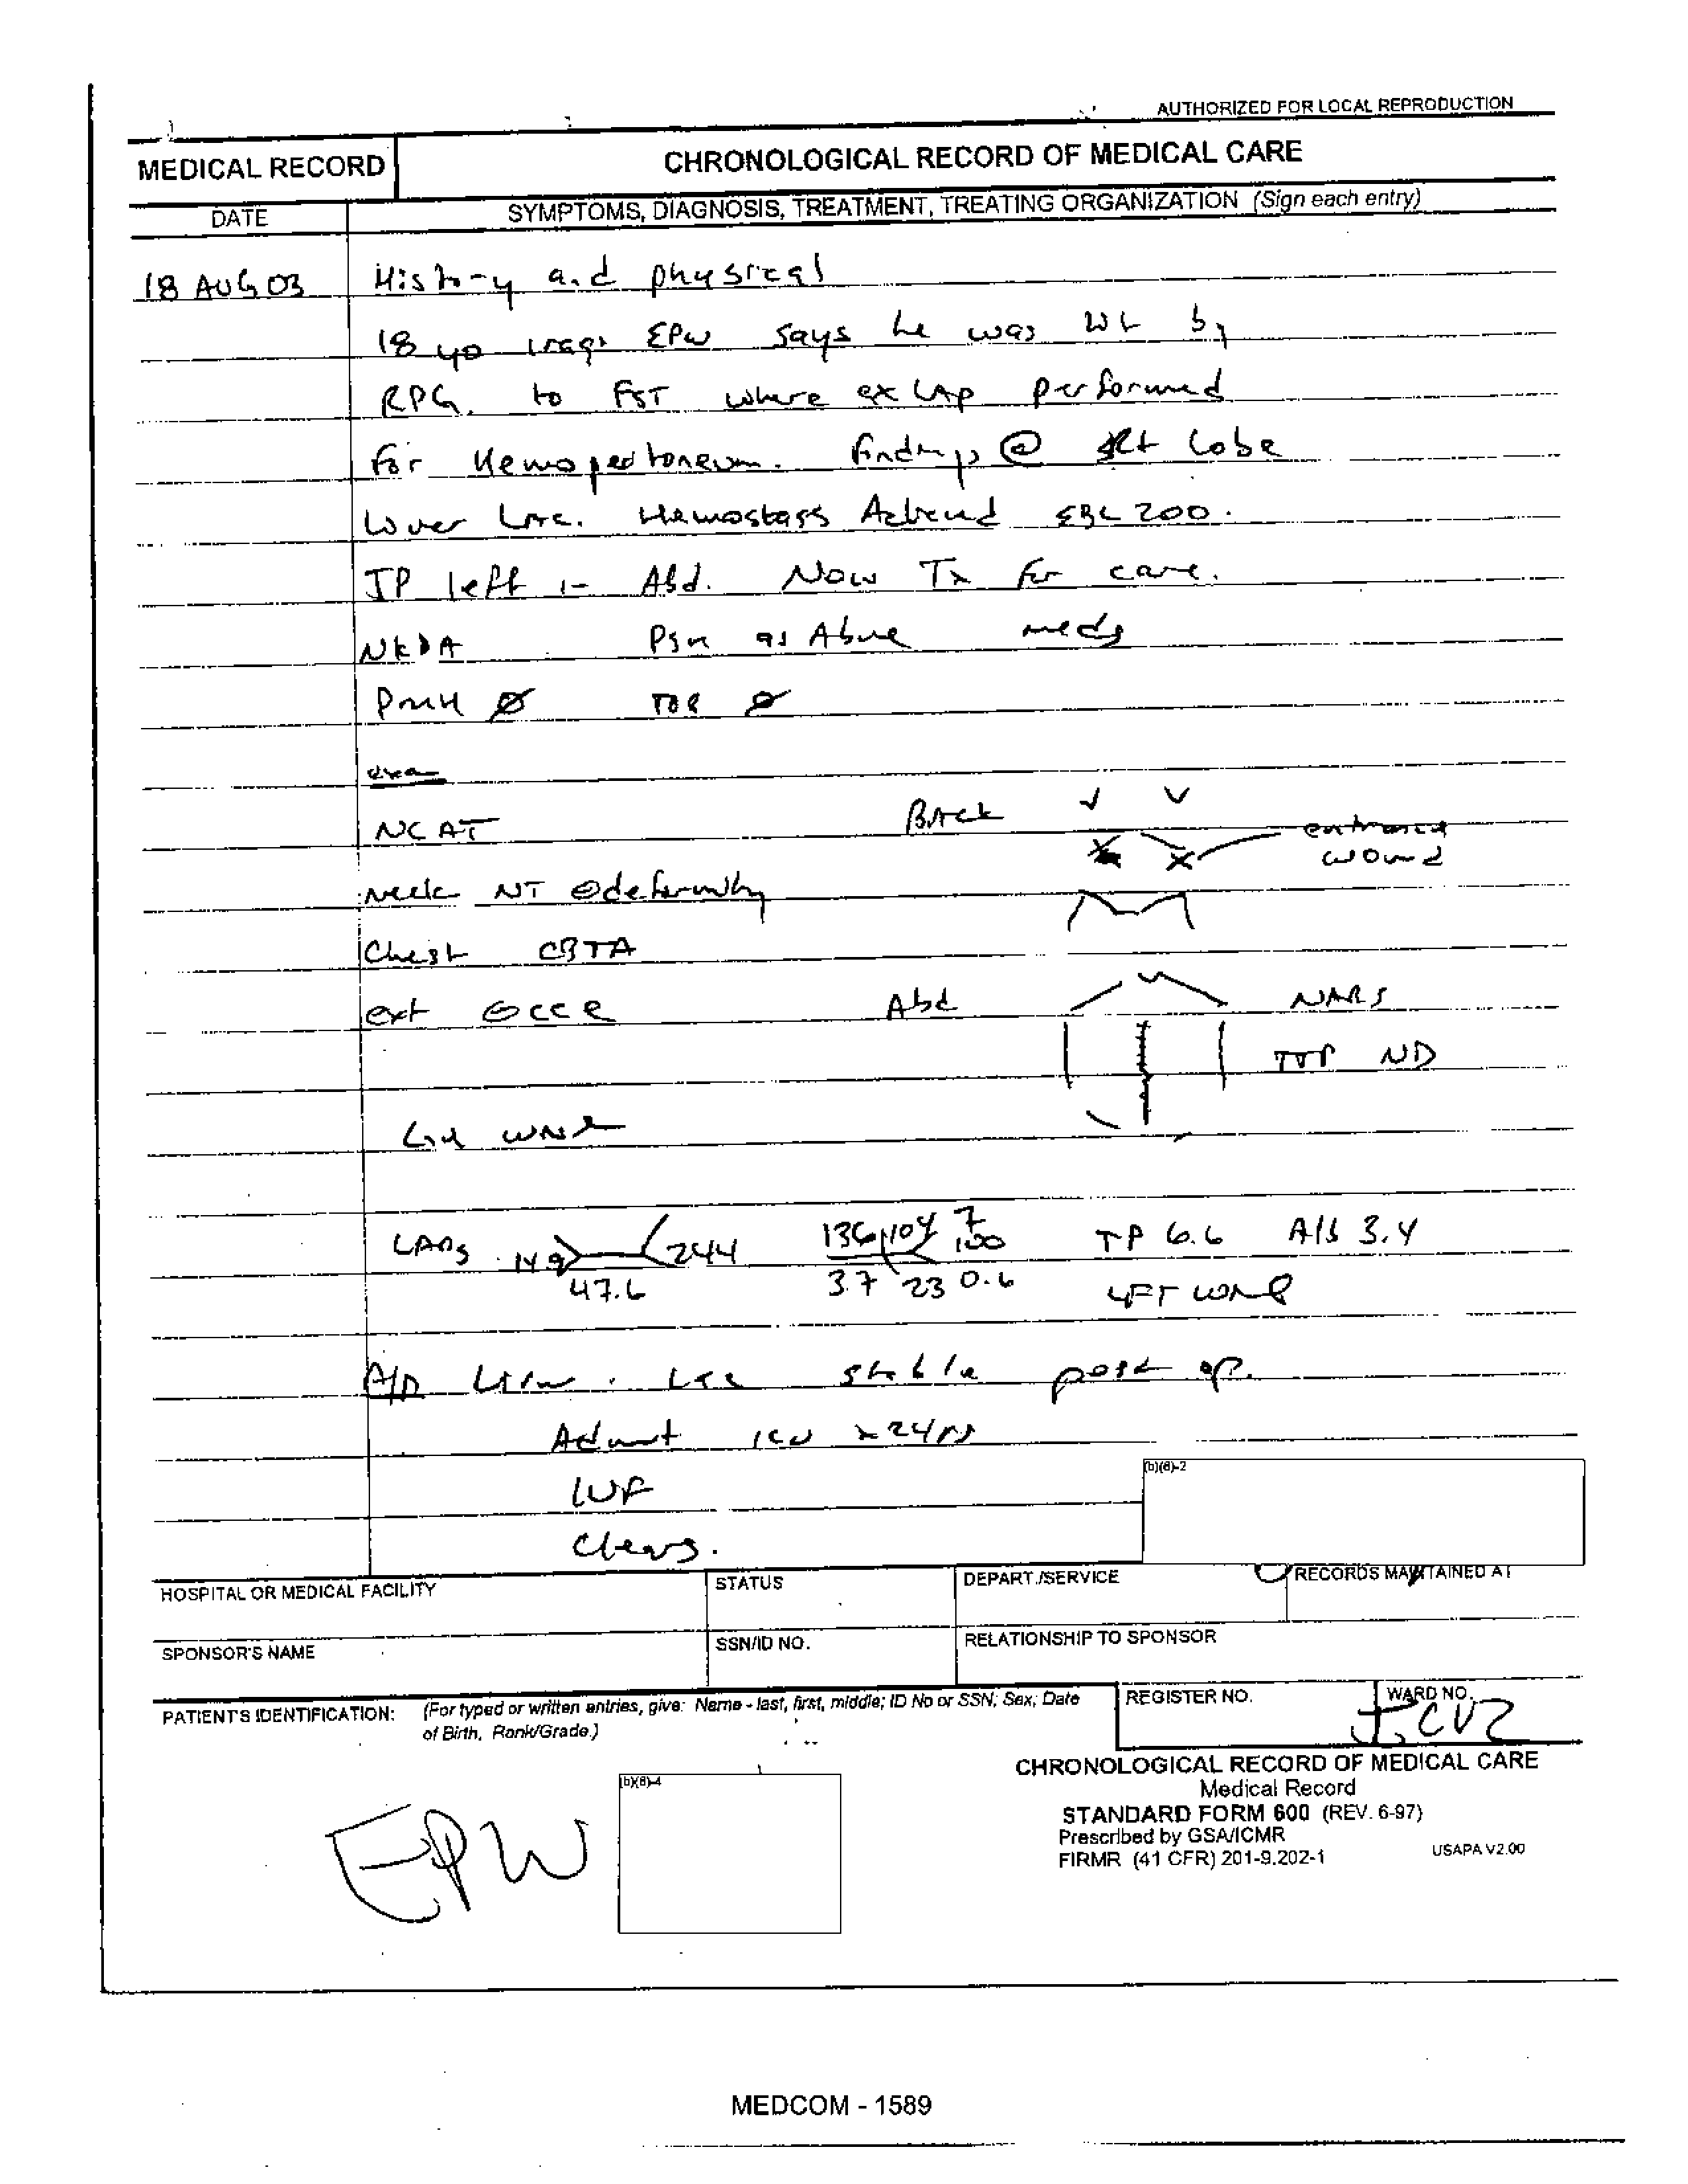 AUTHORIZED FOR LOCAL REPRODUCTION
MEDICAL RECORD
CHRONOLOGICAL RECORD OF MEDICAL CARE
DATE
SYMPTOMS, DIAGNOSIS, TREATMENT, TREATING ORGANIZATION (Sign each entry)
18 AUG 03
History and physical
18 yo Iraqi EPW says he was by
RPG. to FST where ex LAP performed
for Hemoperitoneum. findings @ Rt lobe
Liver Lac. Hemostasis Achieved EBL 200.
JP left in Abd. Now Tx for care.
NKDA PSH as Above meds
PMH Ø TOB Ø
exam
NCAT
Back
entrance
wound
Neck NT ⊖deformity
Chest CBTA
ext ⊖CCE
Abd
NABS
TTP ND
LABS 14.9 244
47.6
136 104 7
100
3.7 23 0.6
TP 6.6 Alb 3.4
LFT WNL
A/P Liver Lac stable post op.
Admit ICU x 24
IVF
Clears.
(b)(6)-2
HOSPITAL OR MEDICAL FACILITY
STATUS
DEPART./SERVICE
RECORDS MAINTAINED AT
SPONSOR'S NAME
SSN/ID NO.
RELATIONSHIP TO SPONSOR
PATIENT'S IDENTIFICATION:
(For typed or written entries, give: Name - last, first, middle; ID No or SSN; Sex; Date
of Birth, Rank/Grade.)
REGISTER NO.
WARD NO.
ICU2
EPW
(b)(6)-4
CHRONOLOGICAL RECORD OF MEDICAL CARE
Medical Record
STANDARD FORM 600 (REV. 6-97)
Prescribed by GSA/ICMR
FIRMR (41 CFR) 201-9.202-1
USAPA V2.00
MEDCOM - 1589